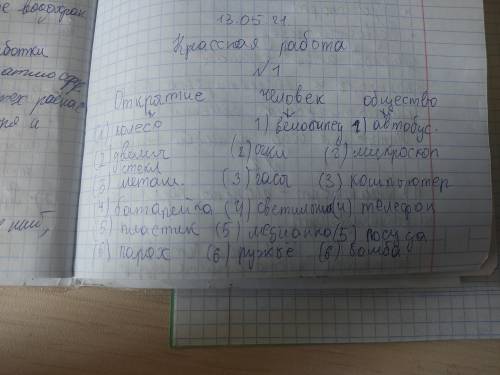 е водохран
ботки
13.05 21
Крассная работа
№1
Открытие человек общество
(1) колесо 1) велосипед 1) автобус.
(2) двелич стекл (2) очки (2) микроскоп
(3) метал. (3) часы (3) компьютер
4) батарейка (4) светильник 4) телефон
(5) пластик (5) ледианка (5) посуда
(6) порох (6) ружье (6) бомба